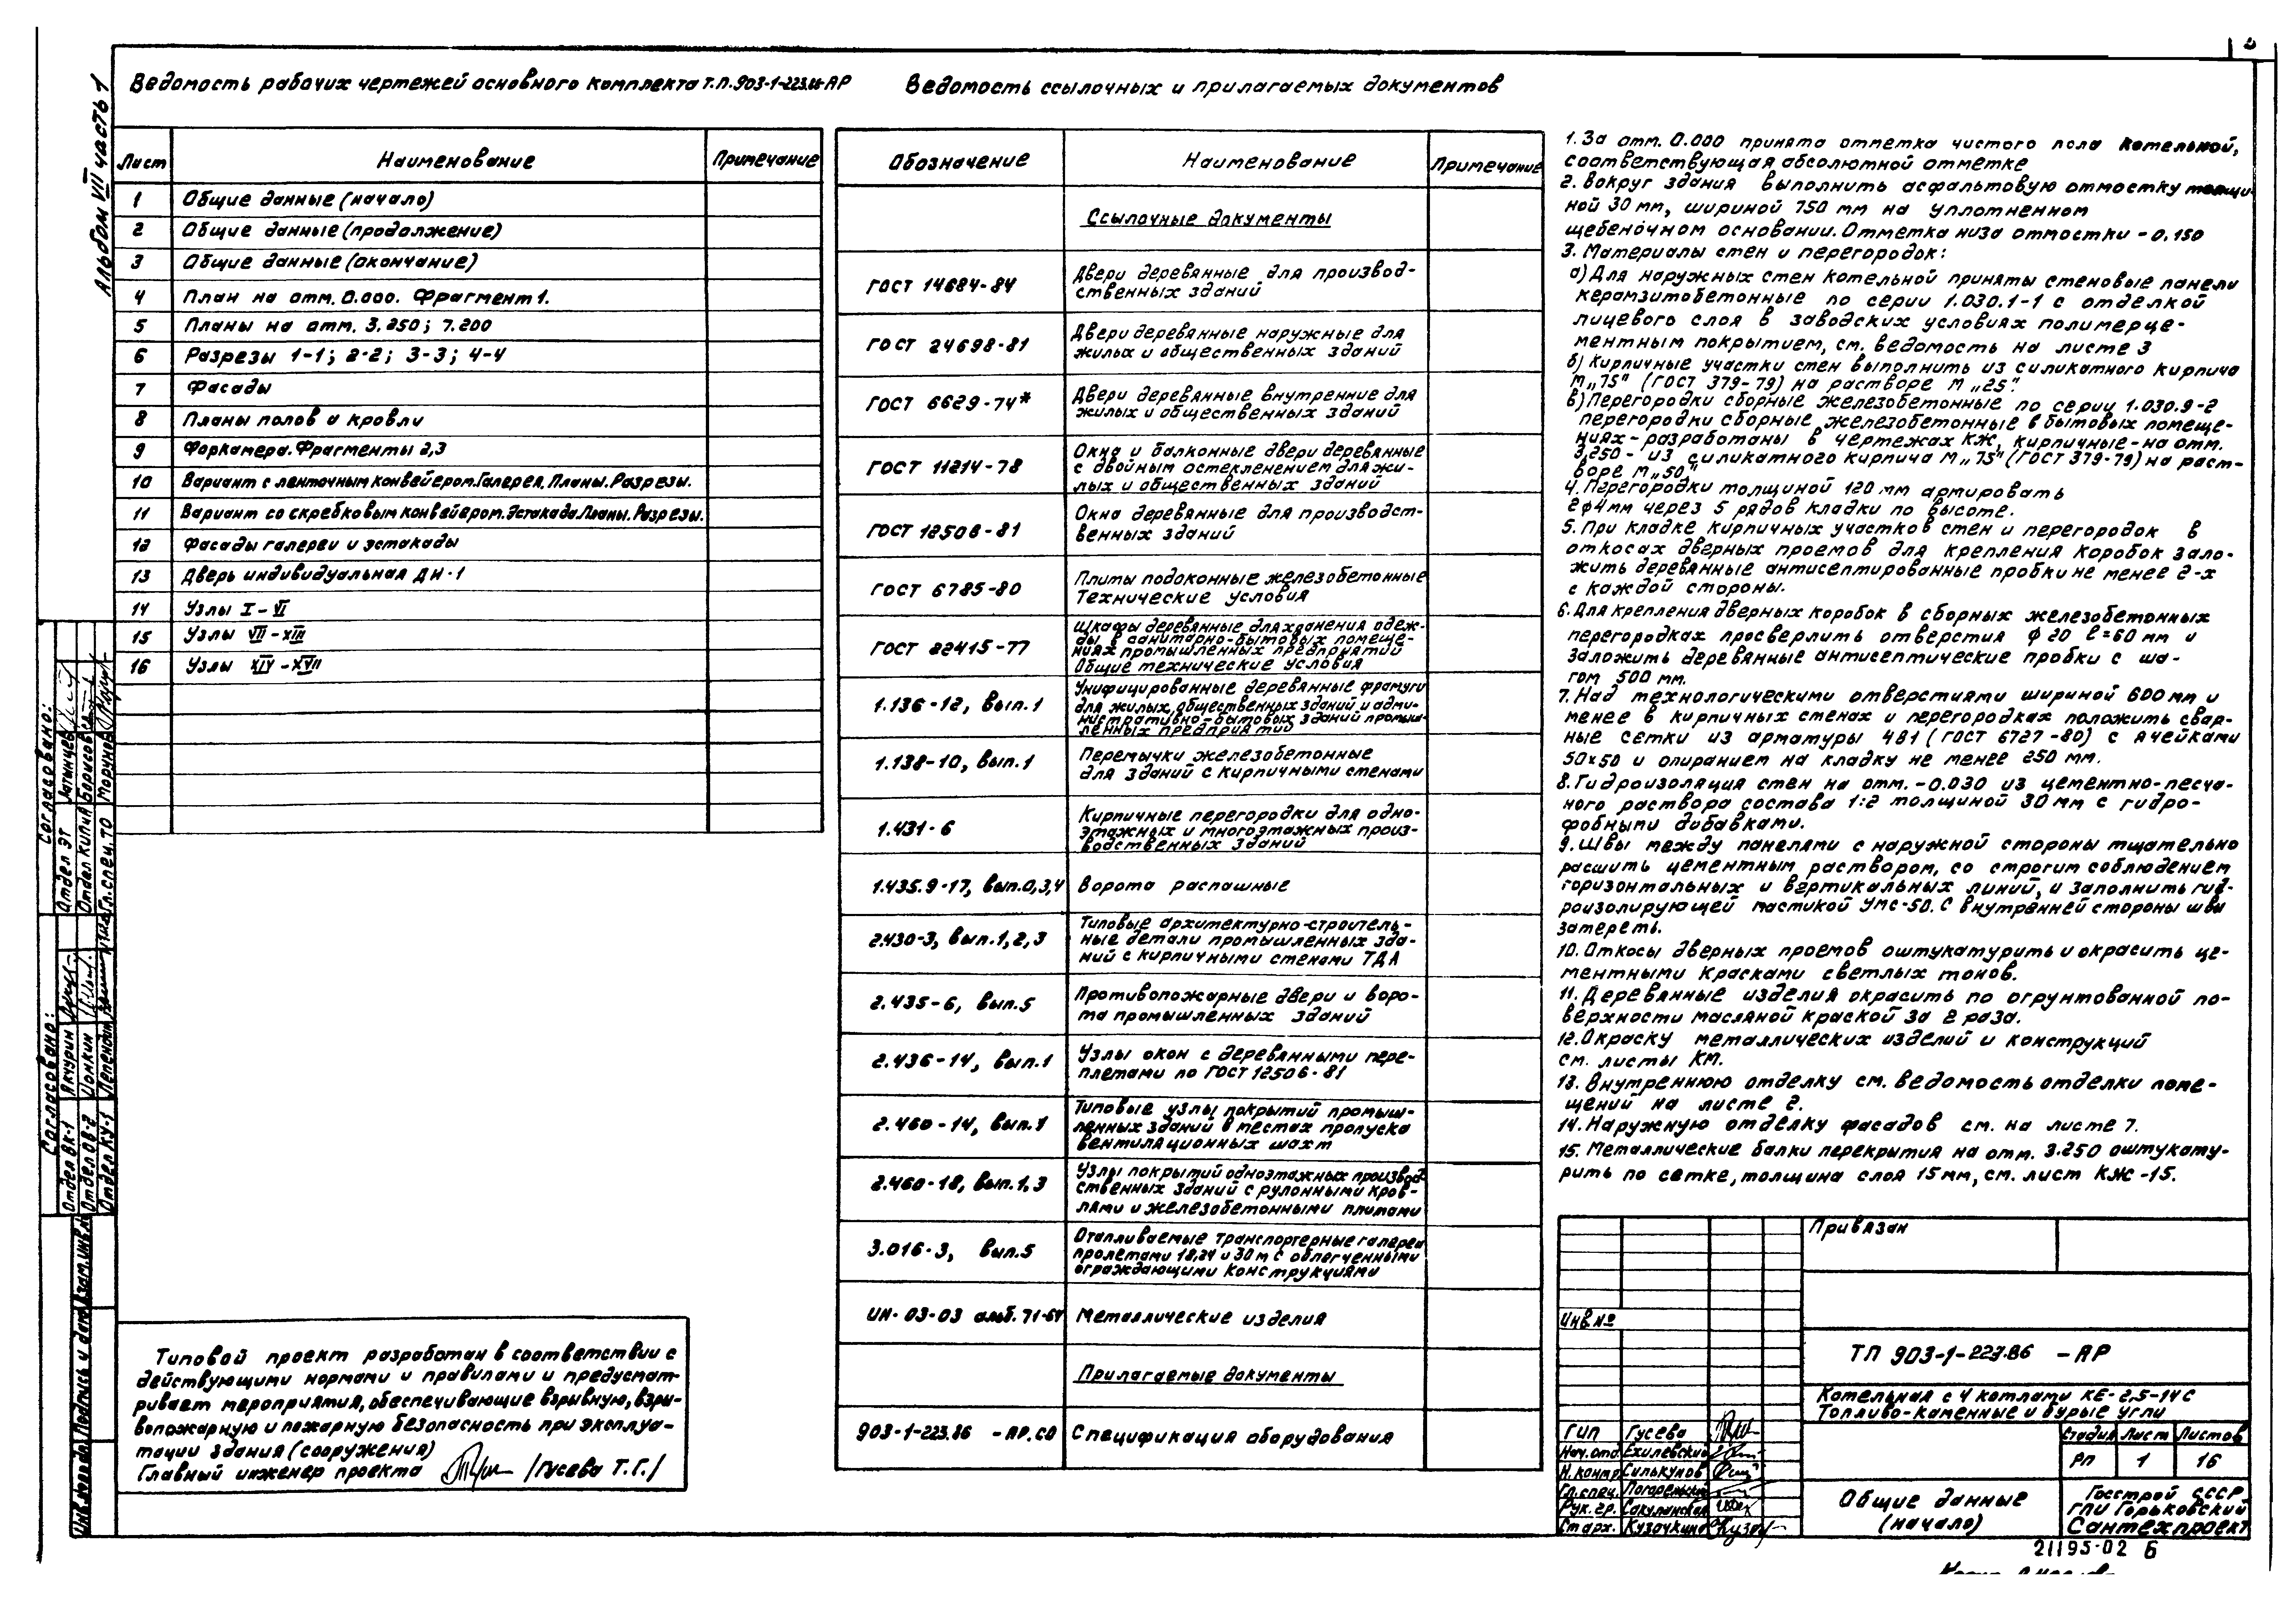 Альбом VII часть 1
Ведомость рабочих чертежей основного комплекта Т.П.903-1-223.86-АР
Лист Наименование Примечание
1 Общие данные (начало)
2 Общие данные (продолжение)
3 Общие данные (окончание)
4 План на отм. 0.000. Фрагмент 1.
5 Планы на отм. 3.250; 7.200
6 Разрезы 1-1; 2-2; 3-3; 4-4
7 Фасады
8 Планы полов и кровли
9 Форкамера. Фрагменты 2,3
10 Вариант с ленточным конвейером. Галерея. Планы. Разрезы.
11 Вариант со скребковым конвейером. Эстакада. Планы. Разрезы.
12 Фасады галереи и эстакады
13 Дверь индивидуальная ДН-1
14 Узлы I - VI
15 Узлы VII - XIII
16 Узлы XIV - XVII
Типовой проект разработан в соответствии с
действующими нормами и правилами и предусмат-
ривает мероприятия, обеспечивающие взрывную, взры-
вопожарную и пожарную безопасность при эксплуа-
тации здания (сооружения)
Главный инженер проекта /Гусева Т.Г./
Ведомость ссылочных и прилагаемых документов
Обозначение Наименование Примечание
Ссылочные документы
ГОСТ 14684-84 Двери деревянные для производ-
ственных зданий
ГОСТ 24698-81 Двери деревянные наружные для
жилых и общественных зданий
ГОСТ 6629-74* Двери деревянные внутренние для
жилых и общественных зданий
ГОСТ 11214-78 Окна и балконные двери деревянные
с двойным остеклением для жи-
лых и общественных зданий
ГОСТ 12506-81 Окна деревянные для производст-
венных зданий
ГОСТ 6785-80 Плиты подоконные железобетонные
Технические условия
ГОСТ 22415-77 Шкафы деревянные для хранения одеж-
ды в санитарно-бытовых помеще-
ниях промышленных предприятий
Общие технические условия
1.136-12, вып.1 Унифицированные деревянные фрамуги
для жилых, общественных зданий и адми-
нистративно-бытовых зданий промыш-
ленных предприятий
1.138-10, вып.1 Перемычки железобетонные
для зданий с кирпичными стенами
1.431-6 Кирпичные перегородки для одно-
этажных и многоэтажных произ-
водственных зданий
1.435.9-17, вып.0,3,4 Ворота распашные
2.430-3, вып.1,2,3 Типовые архитектурно-строитель-
ные детали промышленных зда-
ний с кирпичными стенами ТДА
2.435-6, вып.5 Противопожарные двери и воро-
та промышленных зданий
2.436-14, вып.1 Узлы окон с деревянными пере-
плетами по ГОСТ 12506-81
2.460-14, вып.1 Типовые узлы покрытий промыш-
ленных зданий в местах пропуска
вентиляционных шахт
2.460-18, вып.1,3 Узлы покрытий одноэтажных производ-
ственных зданий с рулонными кров-
лями и железобетонными плитами
3.016-3, вып.5 Отапливаемые транспортерные галереи
пролетами 18,24 и 30м с облегченными
ограждающими конструкциями
ИИ-03-03 альб.71-64 Металлические изделия
Прилагаемые документы
903-1-223.86 -АР.СО Спецификация оборудования
1. За отм. 0.000 принята отметка чистого пола котельной,
соответствующая абсолютной отметке
2. Вокруг здания выполнить асфальтовую отмостку толщи-
ной 30 мм, шириной 750 мм на уплотненном
щебеночном основании. Отметка низа отмостки -0.150
3. Материалы стен и перегородок:
а) Для наружных стен котельной приняты стеновые панели
керамзитобетонные по серии 1.030.1-1 с отделкой
лицевого слоя в заводских условиях полимерце-
ментным покрытием, см. ведомость на листе 3
б) Кирпичные участки стен выполнить из силикатного кирпича
М„75" (ГОСТ 379-79) на растворе М „25".
в) Перегородки сборные железобетонные по серии 1.030.9-2
перегородки сборные железобетонные в бытовых помеще-
ниях-разработаны в чертежах КЖ, кирпичные-на отм.
3,250- из силикатного кирпича М„75" (ГОСТ 379-79) на раст-
воре М„50"
4. Перегородки толщиной 120 мм армировать
2ф4мм через 5 рядов кладки по высоте.
5. При кладке кирпичных участков стен и перегородок в
откосах дверных проемов для крепления коробок зало-
жить деревянные антисептированные пробки не менее 2-х
с каждой стороны.
6. Для крепления дверных коробок в сборных железобетонных
перегородках просверлить отверстия ф 20 l=60 мм и
заложить деревянные антисептические пробки с ша-
гом 500 мм.
7. Над технологическими отверстиями шириной 600 мм и
менее в кирпичных стенах и перегородках положить свар-
ные сетки из арматуры 4В1 (ГОСТ 6727-80) с ячейками
50×50 и опиранием на кладку не менее 250 мм.
8. Гидроизоляция стен на отм. -0.030 из цементно-песча-
ного раствора состава 1:2 толщиной 30 мм с гидро-
фобными добавками.
9. Швы между панелями с наружной стороны тщательно
расшить цементным раствором, со строгим соблюдением
горизонтальных и вертикальных линий, и заполнить гид-
роизолирующей мастикой УМС-50. С внутренней стороны швы
затереть.
10. Откосы дверных проемов оштукатурить и окрасить це-
ментными красками светлых тонов.
11. Деревянные изделия окрасить по огрунтованной по-
верхности масляной краской за 2 раза.
12. Окраску металлических изделий и конструкций
см. листы КМ.
13. Внутреннюю отделку см. ведомость отделки поме-
щений на листе 2.
14. Наружную отделку фасадов см. на листе 7.
15. Металлические балки перекрытия на отм. 3.250 оштукату-
рить по сетке, толщина слоя 15 мм, см. лист КЖ-15.
Привязан
Инв.№
ТП 903-1-223.86 -АР
Котельная с 4 котлами КЕ-2,5-14С
Топливо-каменные и бурые угли
Стадия Лист Листов
РП 1 16
Общие данные
(начало)
Госстрой СССР
ГПИ Горьковский
Сантехпроект
ГИП Гусева
Нач.отд. Ехилевский
Н.контр. Силькунов
Гл.спец.
Рук.гр.
Ст.арх. Кузочкина
21195-02 6
Согласовано:
Отдел ЭТ
Отдел КИПиА Борисов
Гл.спец.ТО Морунов
Согласовано:
Отдел ВК-1 Якурин
Отдел ОВ-2 Цонкин
Отдел КУ-1
Взам.инв.№
Подпись и дата
Инв.№подл.